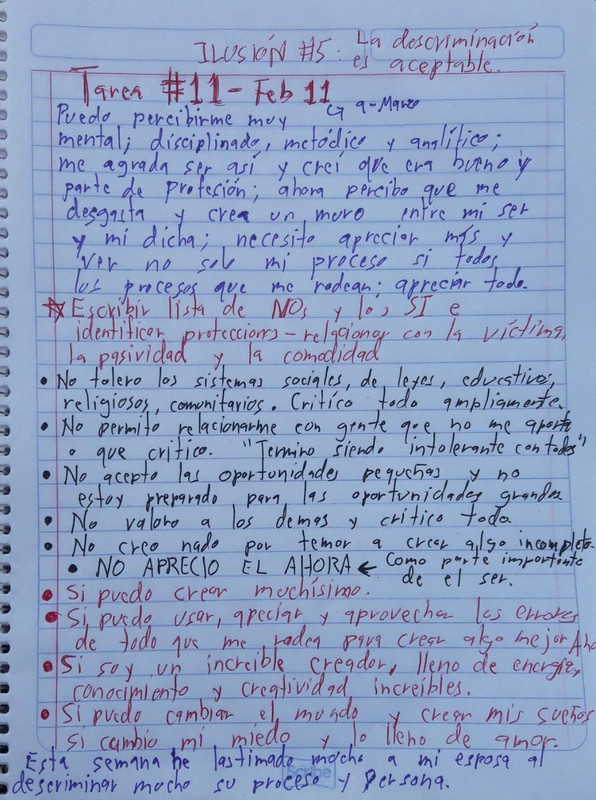 ILUSIÓN #5: La descriminación
es aceptable.
Tarea #11 - Feb 11
↳ 9-Marzo
Puedo percibirme muy
mental; disciplinado, metódico y analítico;
me agrada ser así y creí que era bueno y
parte de profesión; ahora percibo que me
desgasta y crea un muro entre mi ser
y mi dicha; necesito apreciar más y
ver no solo mi proceso si todos
los procesos que me rodean; apreciar todo.
☆ Escribir lista de NOs y los SI e
identificar protecciones - relacionar con la víctima,
la pasividad y la comodidad
• No tolero los sistemas sociales, de leyes, educativos,
religiosos, comunitarios. Critíco todo ampliamente.
• No permito relacionarme con gente que no me aporta
o que critico. "Termino siendo intolerante con todos"
• No acepto las oportunidades pequeñas y no
estoy preparado para las oportunidades grandes
• No valoro a los demas y critico todo.
• No creo nada por temor a crear algo incompleto.
• NO APRECIO EL AHORA ← Como parte importante
de el ser.
• Si puedo crear muchísimo.
• Si puedo usar, apeciar y aprovechar los errores
de todo que me rodea para crear algo mejor Aho
• Si soy un increible creador, lleno de energía,
conocimiento y creatividad increíbles.
• Si puedo cambiar el mundo y crear mis sueños
si cambio mi miedo y lo lleno de amor.
Esta semana he lastimado mucho a mi esposa al
descriminar mucho su proceso y persona.
Scribe